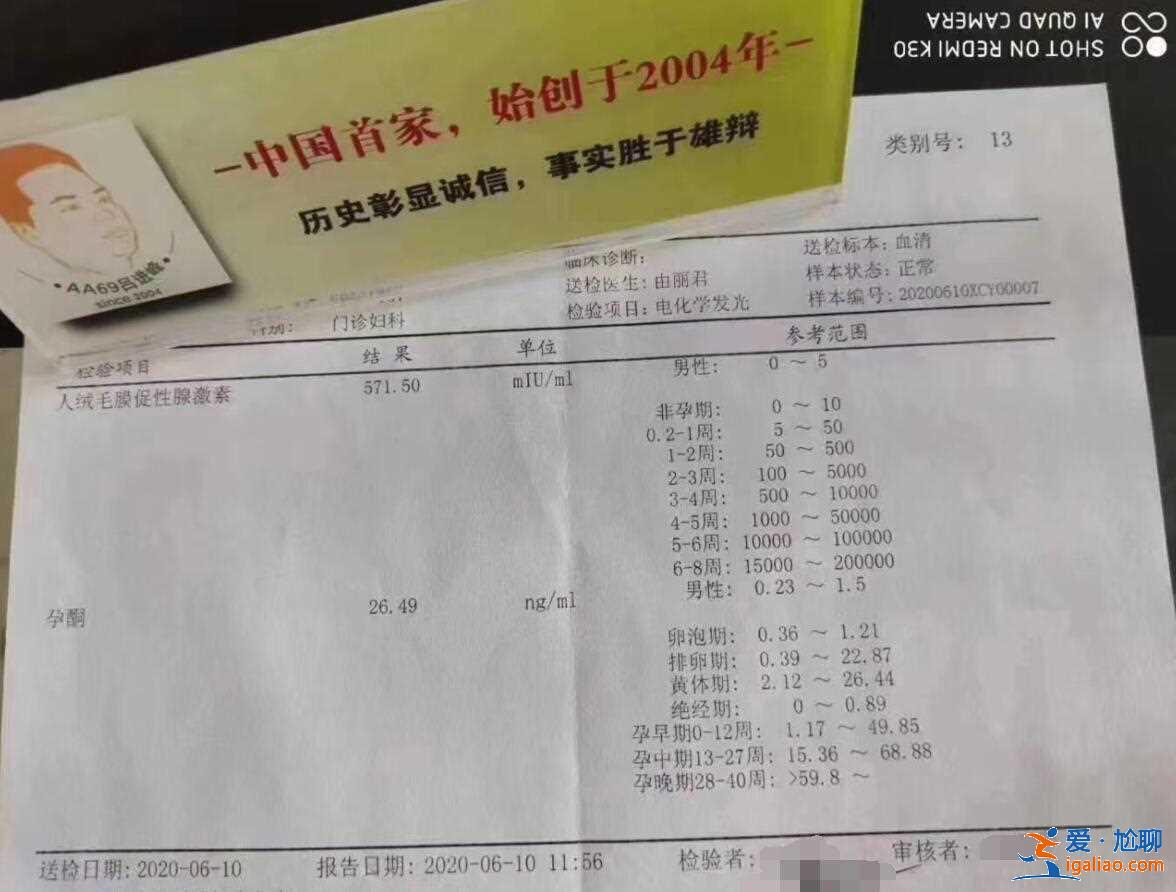 SHOT ON REDMI K30
AI QUAD CAMERA
-中国首家，始创于2004年-
历史彰显诚信，事实胜于雄辩
•AA69吕进峰•
since 2004
类别号： 13
临床诊断：
送检标本：血清
送检医生：由丽君
样本状态：正常
门诊妇科
检验项目：电化学发光
样本编号：20200610XCY00007
检验项目 结 果 单位 参考范围
人绒毛膜促性腺激素 571.50 mIU/ml 男性： 0 ～ 5
非孕期： 0 ～ 10
0.2-1周： 5 ～ 50
1-2周： 50 ～ 500
2-3周： 100 ～ 5000
3-4周： 500 ～ 10000
4-5周： 1000 ～ 50000
5-6周： 10000 ～ 100000
6-8周： 15000 ～ 200000
孕酮 26.49 ng/ml 男性： 0.23 ～ 1.5
卵泡期： 0.36 ～ 1.21
排卵期： 0.39 ～ 22.87
黄体期： 2.12 ～ 26.44
绝经期： 0 ～ 0.89
孕早期0-12周： 1.17 ～ 49.85
孕中期13-27周： 15.36 ～ 68.88
孕晚期28-40周： >59.8 ～
送检日期：2020-06-10 报告日期：2020-06-10 11:56 检验者： 审核者：
爱·尬聊
igaliao.com